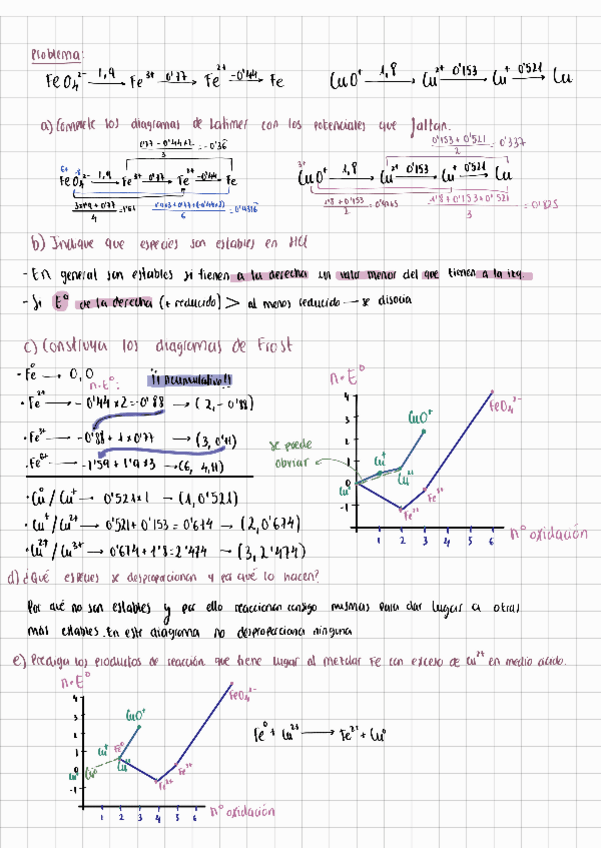 Problema:
FeO₄²⁻ —1'9→ Fe³⁺ —0'77→ Fe²⁺ —-0'44→ Fe    CuO⁺ —1'8→ Cu²⁺ —0'153→ Cu⁺ —0'521→ Cu
a) Complete los diagramas de Latimer con los potenciales que faltan.
(0'77 - 0'44x2)/3 = -0'36    (0'153 + 0'521)/2 = 0'337
FeO₄²⁻ —1'9→ Fe³⁺ —0'77→ Fe²⁺ —-0'44→ Fe    CuO⁺ —1'8→ Cu²⁺ —0'153→ Cu⁺ —0'521→ Cu
b) Indique que especies son estables en HCl
- En general son estables si tienen a la derecha un valor menor del que tienen a la izq.
- Si E° de la derecha (+ reducido) > al menos reducido — se disocia
c) Construya los diagramas de Frost
- Fe⁰ → 0,0
n·E°: ¡¡Acumulativo!!
· Fe²⁺ → -0'44 x2 = -0'88 → (2, -0'88)
· Fe³⁺ → -0'88 + 1 x 0'77 → (3, 0'11)
· Fe⁶⁺ → -1'59 + 1'9 x3 → (6, 4,11)
· Cu⁰/Cu⁺ → 0'521x1 → (1, 0'521)
· Cu⁺/Cu²⁺ → 0'521 + 0'153 = 0'674 → (2, 0'674)
· Cu²⁺/Cu³⁺ → 0'674 + 1'8 = 2'474 → (3, 2'474)
n·E°
4
3
2
1
-1
1 2 3 4 5 6
nº oxidación
FeO₄²⁻
CuO⁺
Cu⁺
Cu²⁺
Cu⁰
Fe²⁺
Fe³⁺
se puede
obviar
d) ¿Qué especies se desproporcionan y por qué lo hacen?
Por qué no son estables y por ello reaccionan consigo mismas para dar lugar a otras
más estables. En este diagrama no desproporciona ninguna
e) Prediga los productos de reacción que tiene lugar al mezclar Fe con exceso de Cu²⁺ en medio ácido.
n·E°
4
3
1
-1
1 2 3 4 5 6
nº oxidación
FeO₄²⁻
CuO⁺
Cu⁺
Fe⁰
Cu²⁺
Cu⁰
Fe²⁺
Fe³⁺
Fe⁰ + Cu²⁺ → Fe²⁺ + Cu⁰